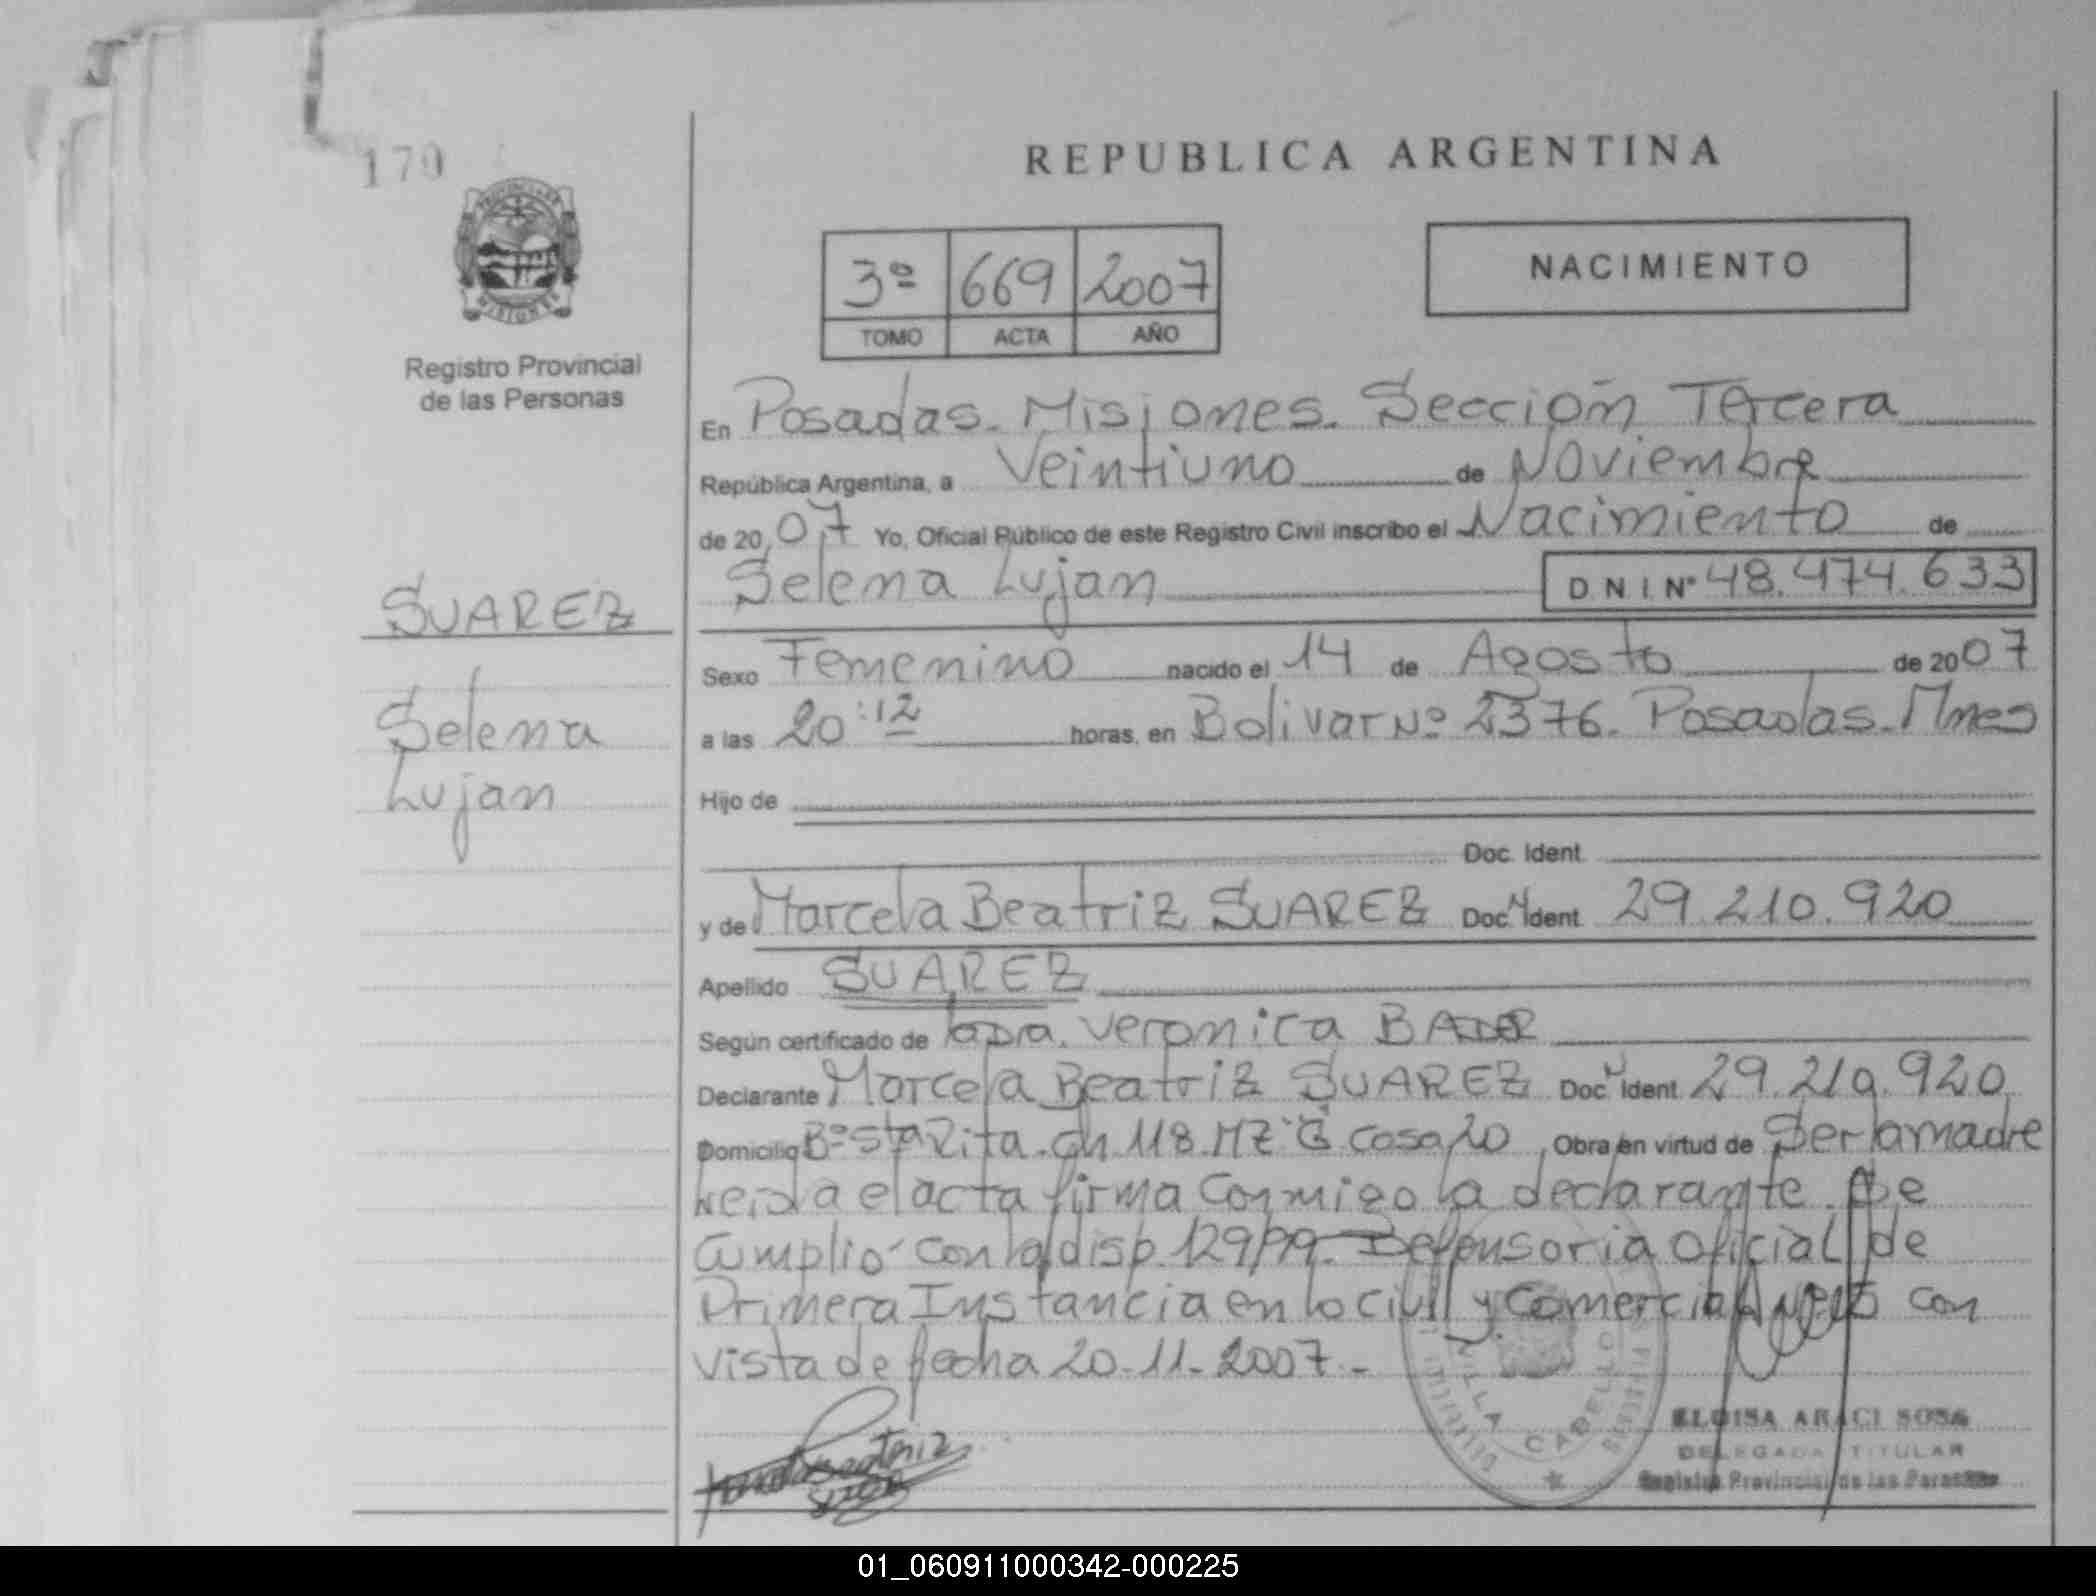 170
REPUBLICA ARGENTINA
3º 669 2007
TOMO ACTA AÑO
NACIMIENTO
Registro Provincial
de las Personas
SUAREZ
Selena
Lujan
En Posadas. Misiones. Sección Tercera
República Argentina, a Veintiuno de Noviembre
de 20 07 Yo, Oficial Público de este Registro Civil inscribo el Nacimiento de
Selena Lujan D N I Nº 48.474.633
Sexo Femenino nacido el 14 de Agosto de 20 07
a las 20:12 horas, en Bolivar Nº 2376. Posadas. Mnes
Hijo de
Doc. Ident.
y de Marcela Beatriz SUAREZ Doc. Ident. 29.210.920
Apellido SUAREZ
Según certificado de la Dra. Veronica
Declarante Marcela Beatriz SUAREZ Doc. Ident. 29.210.920
Domicilio Bº Sta Rita. Ch 118. MZ "G" Casa 20 Obra en virtud de Ser la madre
Leida el acta firma Conmigo la declarante. Se
Cumplio con la disp. 129/99. Defensoria Oficial de
Primera Instancia en lo Civil y Comercial Nº con
vista de fecha 20-11-2007.-
Beatriz
VILLA CABELLO
ELOISA ARACI SOSA
DELEGADA TITULAR
Registro Provincial de las Personas
01_060911000342-000225